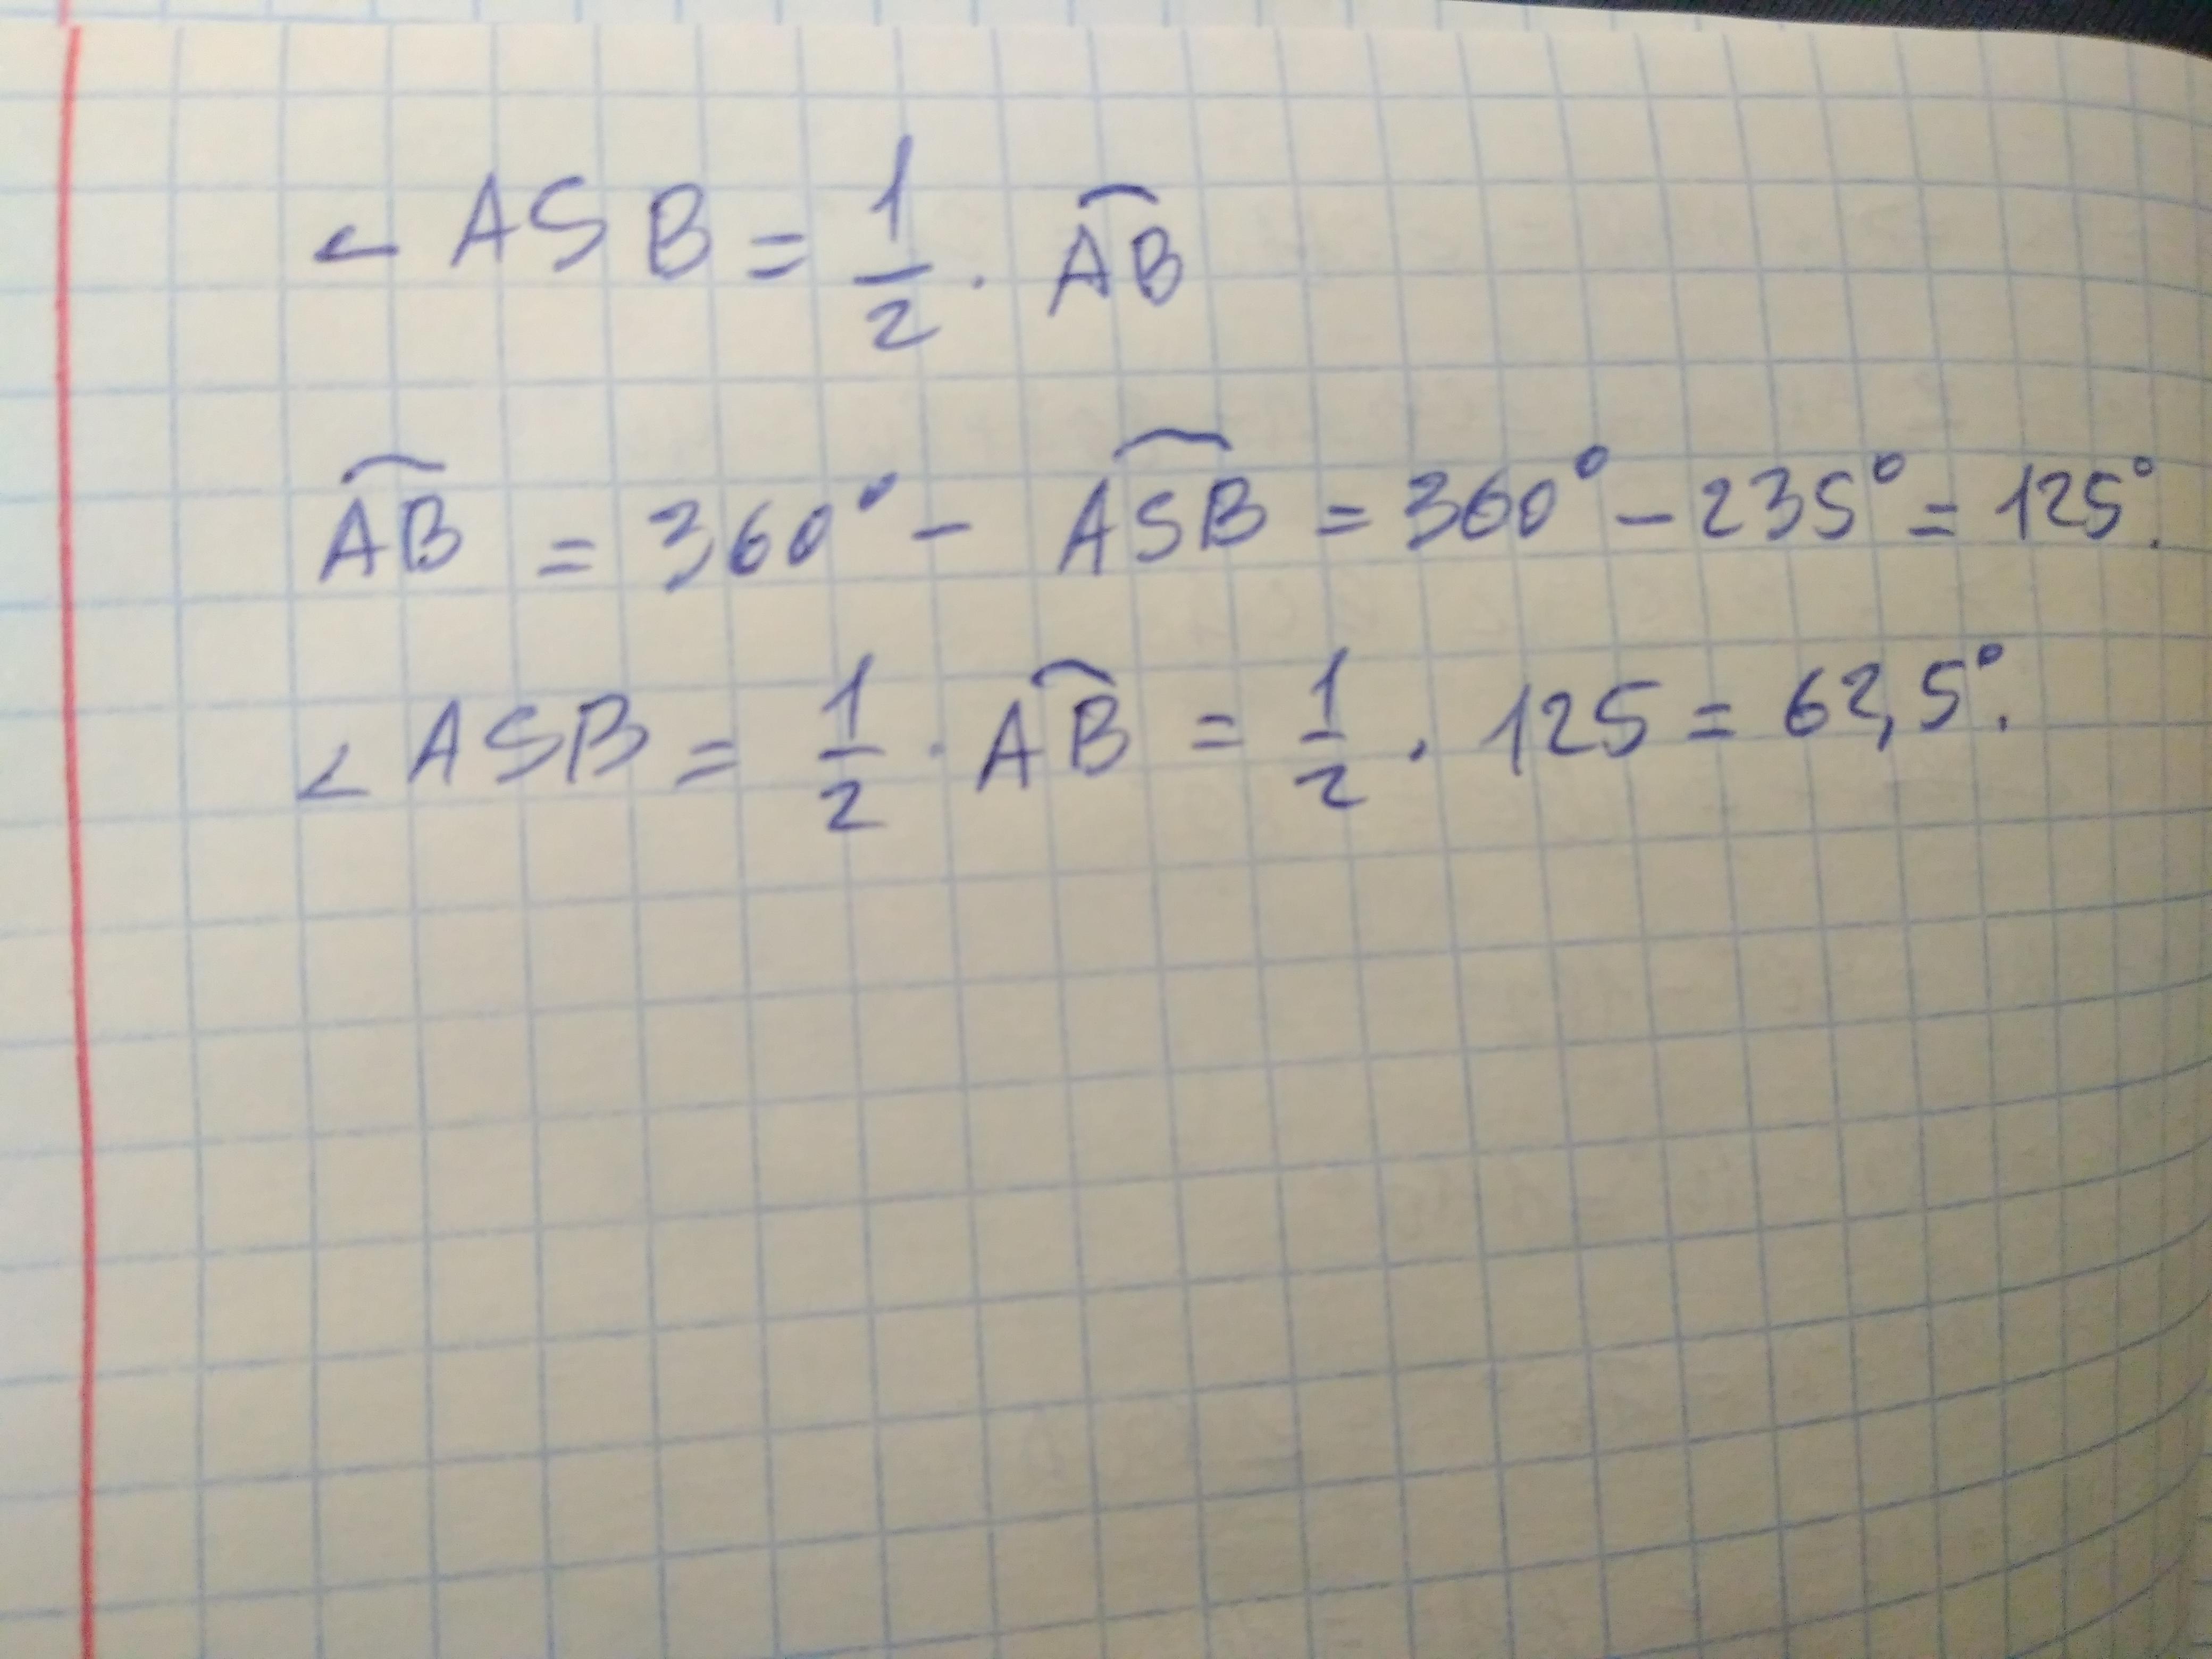 ∠ ASB = 1/2 · ⌒AB
⌒AB = 360° - ⌒ASB = 360° - 235° = 125°.
∠ ASB = 1/2 · ⌒AB = 1/2 · 125 = 62,5°.